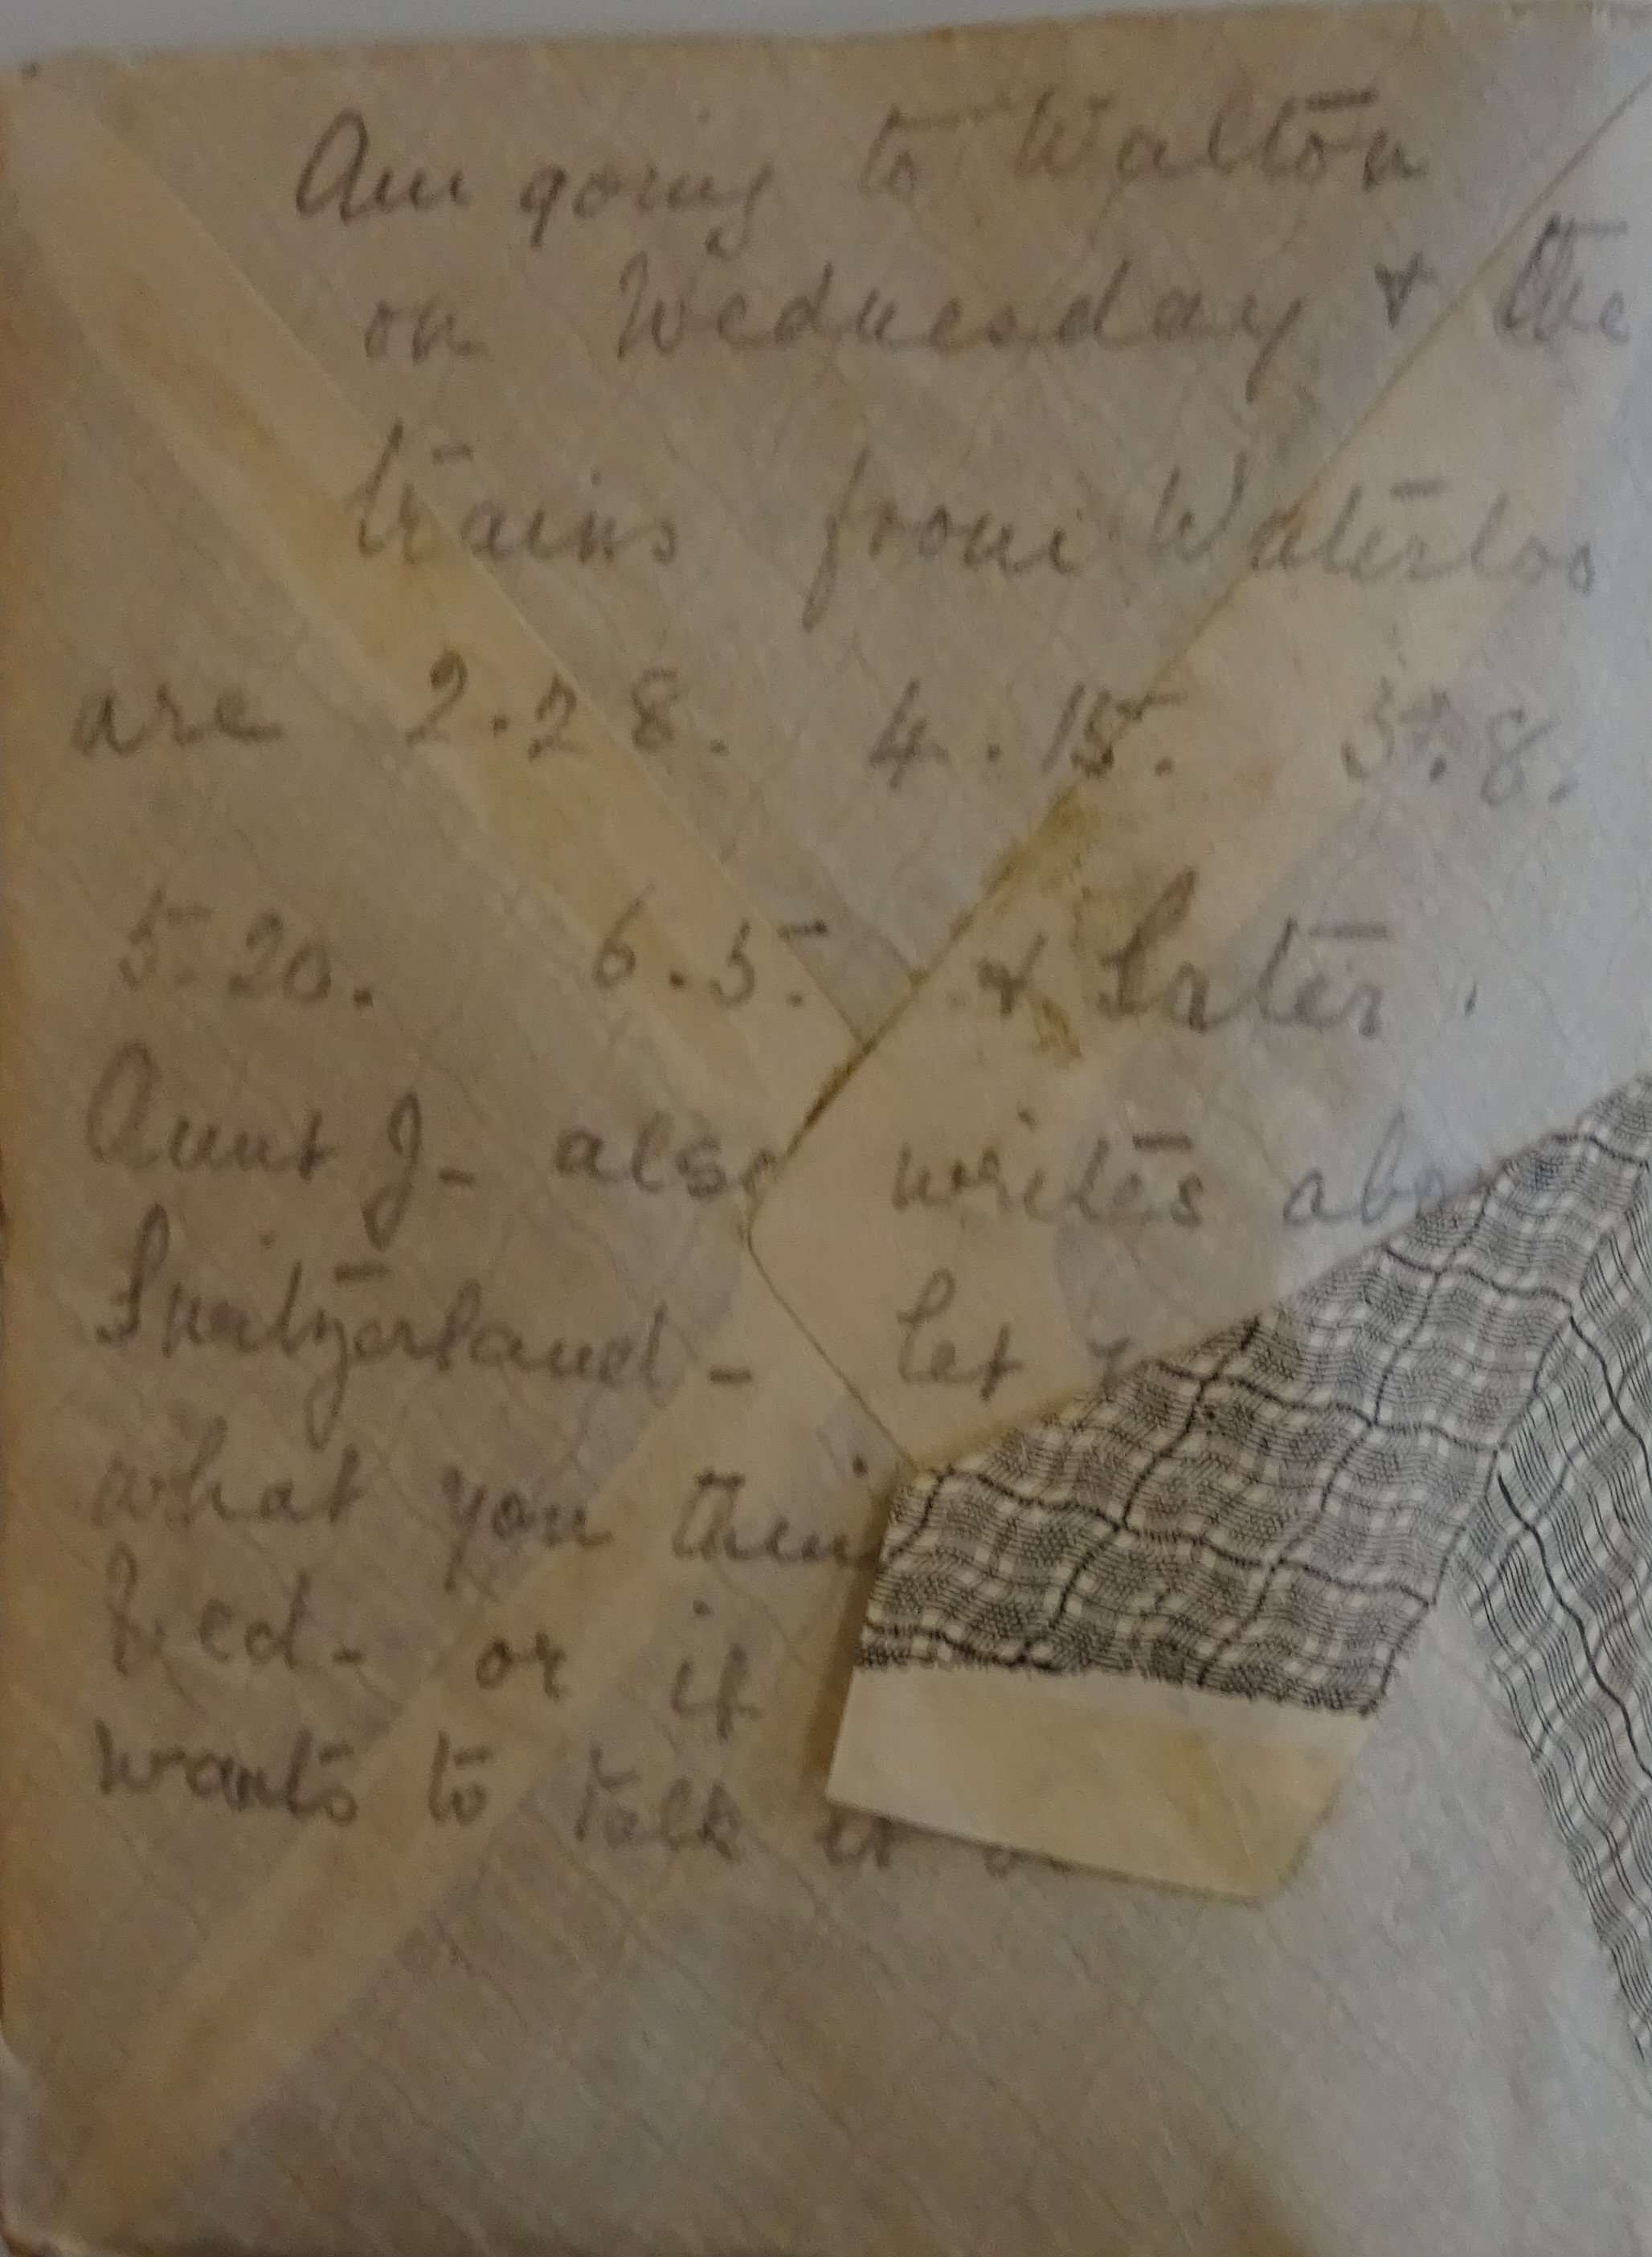 Am going to Walton
on Wednesday & the
trains from Waterloo
are 2.28. 4.15. 5.8.
5.20. 6.5. & Later.
Aunt J- also writes abo
Switzerland - Let
what you thin
- or if
wants to talk it